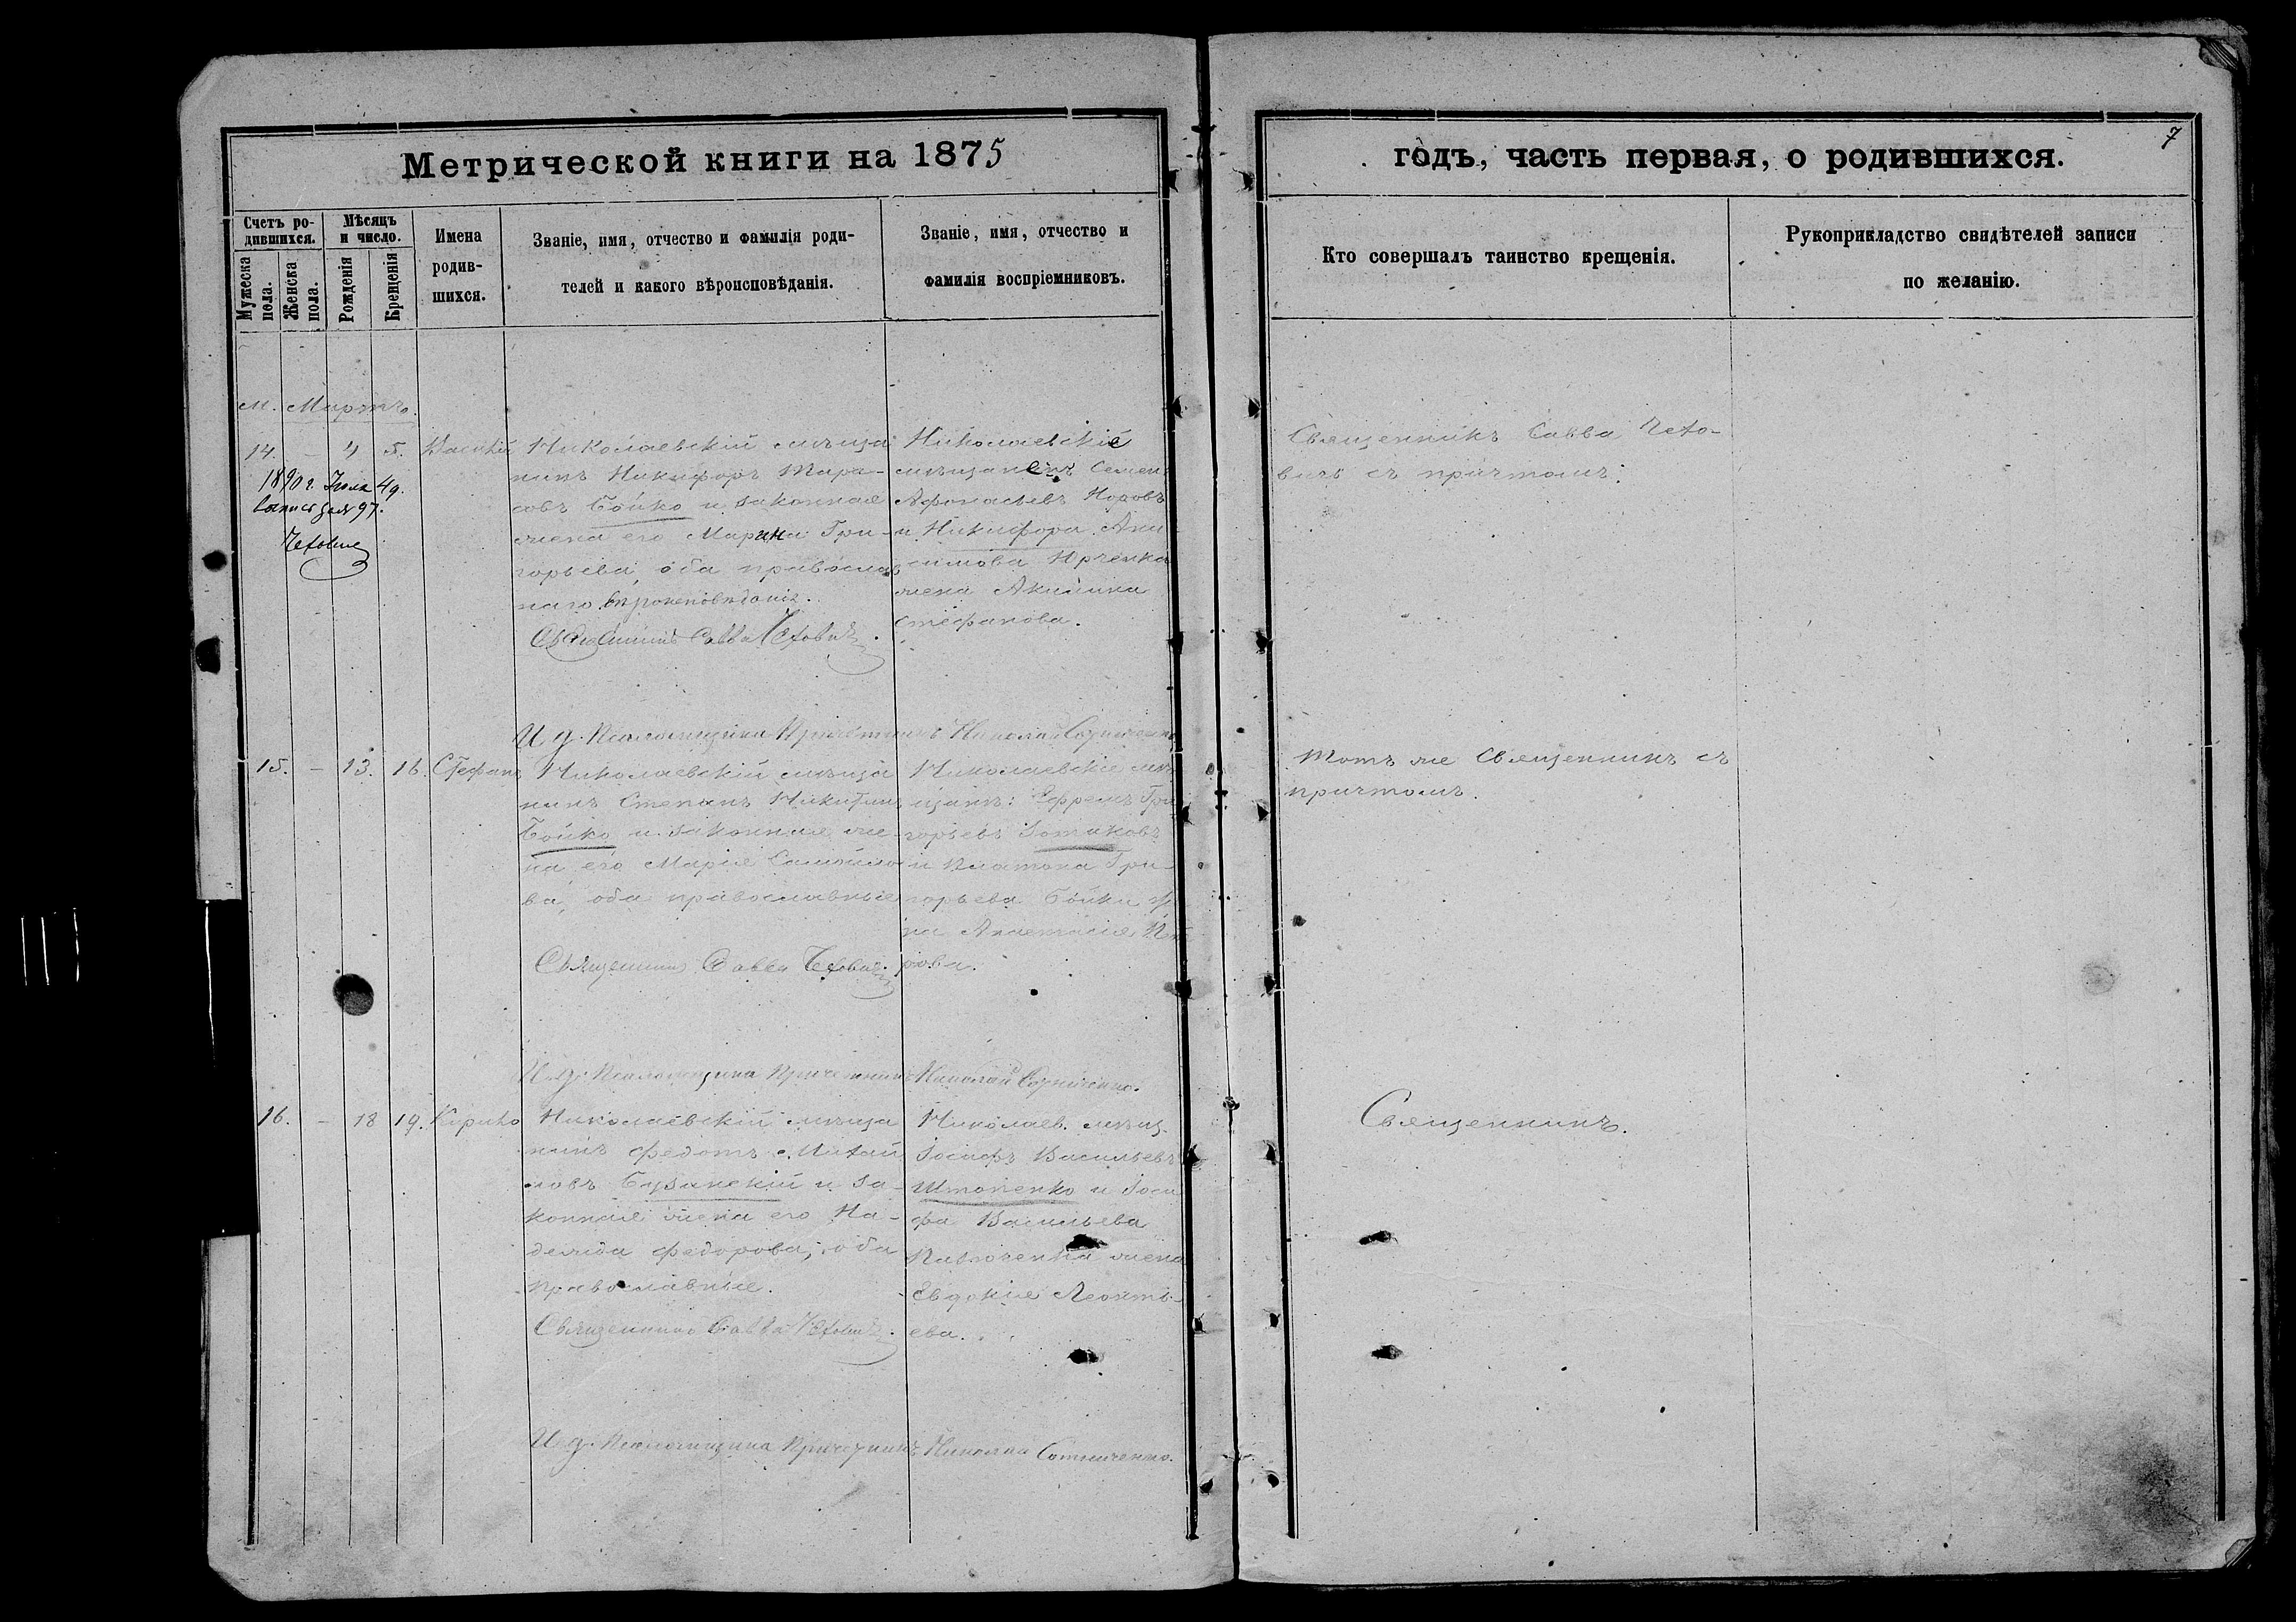 Метрической книги на 1875
годъ, часть первая, о родившихся.
7
Счетъ ро-
дившихся.
Мужеска
пола.
Женска
пола.
Мѣсяцъ
и число.
Рожденія
Крещенія
Имена
родив-
шихся.
Званіе, имя, отчество и фамилія роди-
телей и какого вѣроисповѣданія.
Званіе, имя, отчество и
фамилія воспріемниковъ.
Кто совершалъ таинство крещенія.
Рукоприкладство свидѣтелей записи
по желанію.
м. Мартъ.
14. – 4 5. Василій
1890 г. Іюля 49.
Николаевскій мѣща
нинъ Никифоръ Тара-
совъ Бойко и законная
жена его Марина Гри-
горьева, оба православ
наго вѣроисповѣданія.
Священникъ Савва Чеховичъ.
Николаевскіе
мѣщане Семенъ
Афонасьевъ Носовъ
и Никифора Ани
симова Юрченка
жена Акилина
Стефанова.
Священникъ Савва Чехо-
вичъ съ причтомъ.
И. д. Псаломщика Причетникъ Николай Сотниченко
15. – 13. 16. Стефанъ
Николаевскій мѣща
нинъ Степанъ Никитинъ
Бойко и законная же-
на его Марія Самойло
ва, оба православные
Священникъ Савва Чеховичъ.
Николаевскіе мѣ
щане: Ефремъ Гри
горьевъ Зотиковъ
и Платона Гри-
горьева Бойка же
на Анастасія Пет
рова.
Тотъ же Священникъ съ
причтомъ.
И. д. Псаломщика Причетникъ Николай Сотниченко.
16. – 18 19. Кирилъ
Николаевскій мѣща
нинъ Федотъ Михай
ловъ Бузинскій и за-
конная жена его На-
дежда Федорова, оба
православные.
Священникъ Савва Чеховичъ.
Николаев. мѣщ.
Іосифъ Васильевъ
Штопенко и Іоси
фа Васильева
Павлоченка жена
Евдокія Леонть-
ева.
Священникъ.
И. д. Псаломщика Причетникъ Николай Сотниченко.